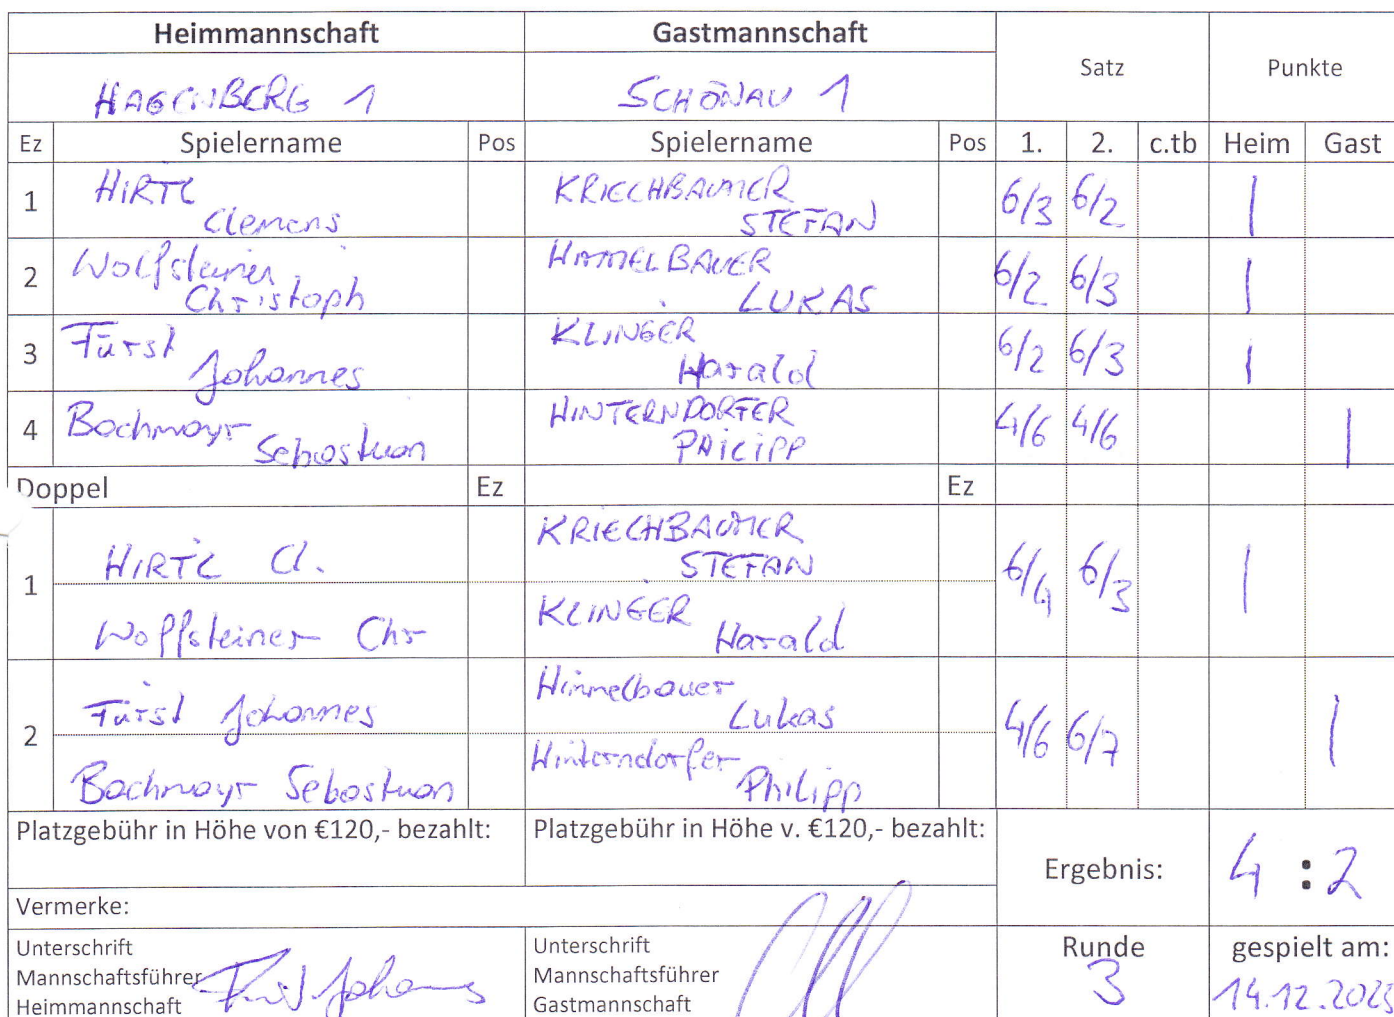 Heimmannschaft Gastmannschaft Satz Punkte
HAGENBERG 1 SCHÖNAU 1
Ez Spielername Pos Spielername Pos 1. 2. c.tb Heim Gast
1 HIRTL Clemens KRIECHBAUMER STEFAN 6/3 6/2 |
2 Wolfsteiner Christoph HIMMELBAUER LUKAS 6/2 6/3 |
3 Fürst Johannes KLINGER Harald 6/2 6/3 |
4 Bachmayr Sebastian HINTERNDORFER PHILIPP 4/6 4/6 |
Doppel Ez Ez
1 HIRTL Cl. KRIECHBAUMER STEFAN 6/4 6/3 |
Wolfsteiner Chr KLINGER Harald
2 Fürst Johannes Himmelbauer Lukas 4/6 6/7 |
Bachmayr Sebastian Hinterndorfer Philipp
Platzgebühr in Höhe von €120,- bezahlt: Platzgebühr in Höhe v. €120,- bezahlt:
Ergebnis: 4 : 2
Vermerke:
Unterschrift Unterschrift Runde gespielt am:
Mannschaftsführer Mannschaftsführer 3 14.12.2025
Heimmannschaft Fürst Johannes Gastmannschaft